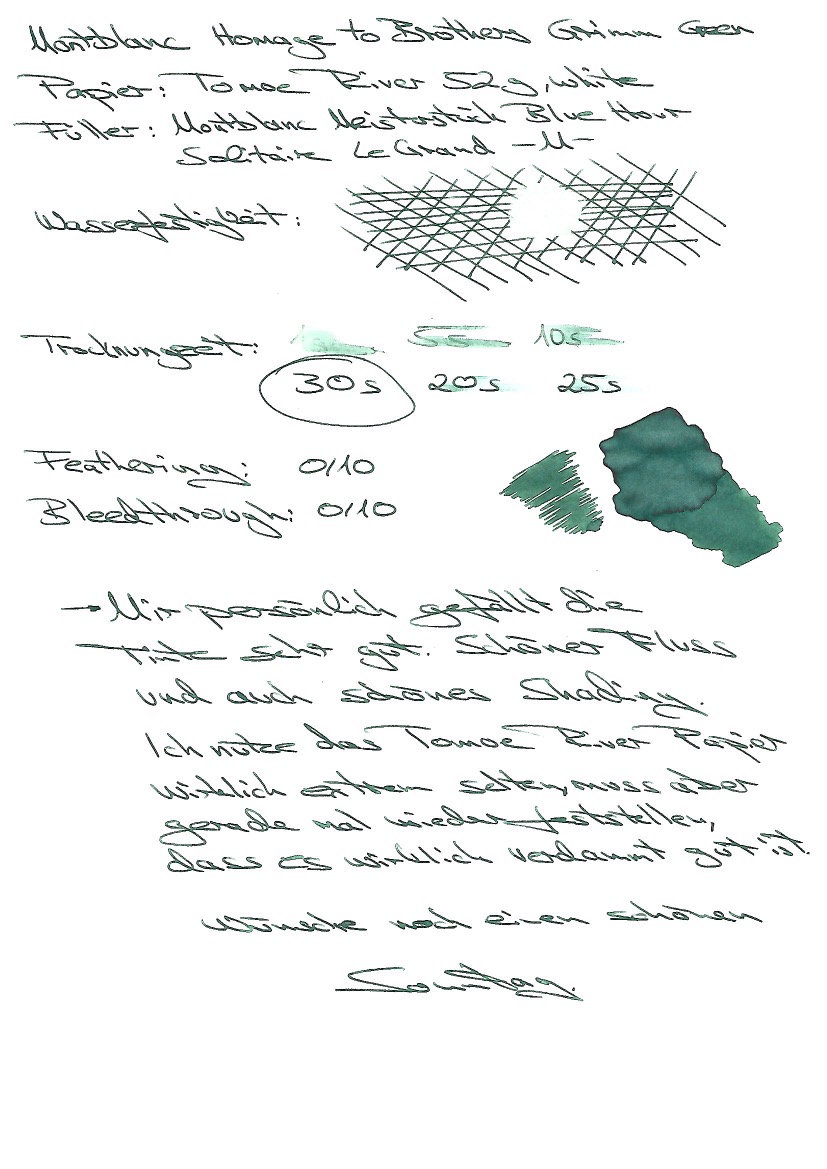 Montblanc Homage to Brothers Grimm Green
Papier: Tomoe River 52g, white
Füller: Montblanc Meisterstück Blue Hour
Solitaire LeGrand -M-
Wasserfestigkeit:
Trocknungszeit: 1s 5s 10s
30s 20s 25s
Feathering: 0/10
Bleedthrough: 0/10
→ Mir persönlich gefällt die
Tinte sehr gut. Schöner Fluss
und auch schönes Shading.
Ich nutze das Tomoe River Papier
wirklich extrem selten, muss aber
gerade mal wieder feststellen,
dass es wirklich verdammt gut ist.
Wünsche noch einen schönen
Sonntag.